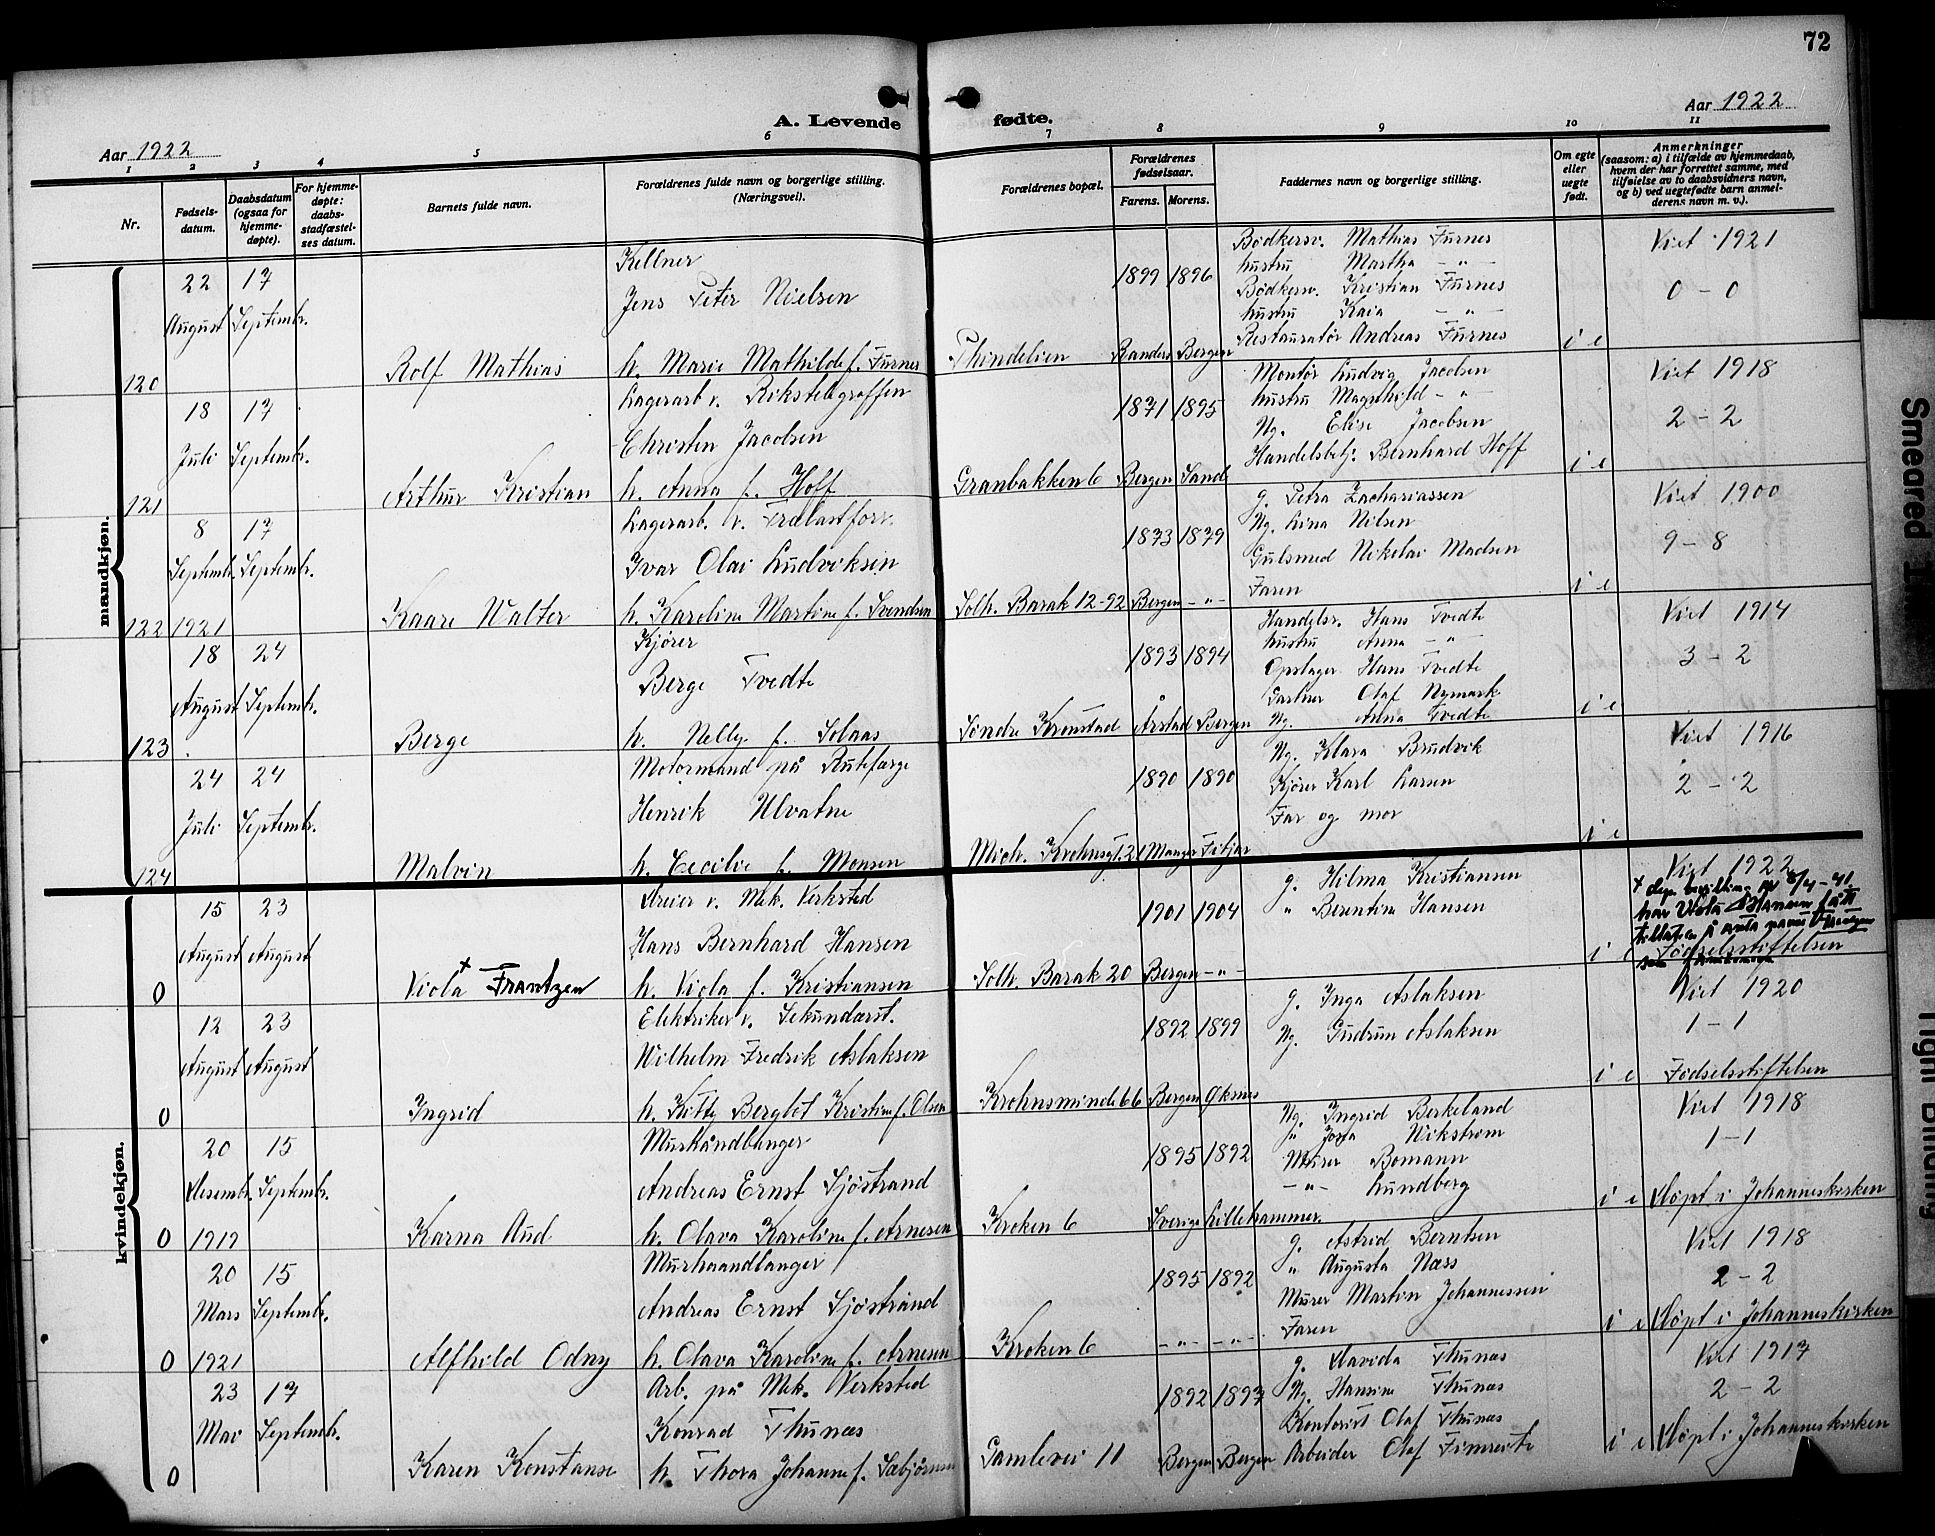 72
A. Levende fødte.
Aar 1922
Aar 1922
1 2 3 4 5 6 7 8 9 10 11
Nr.
Fødsels-
datum.
Daabsdatum
(ogsaa for
hjemme-
døpte).
For hjemme-
døpte:
daabs-
stadfæstel-
ses datum.
Barnets fulde navn.
Forældrenes fulde navn og borgerlige stilling.
(Næringsvei).
Forældrenes bopæl.
Forældrenes
fødselsaar.
Farens. Morens.
Faddernes navn og borgerlige stilling.
Om egte
eller
uegte
født.
Anmerkninger
(saasom: a) i tilfælde av hjemmedaab,
hvem der har forrettet samme, med
tilføielse av to daabsvidners navn,
og b) ved uegtefødte barn anmel-
derens navn m. v.).
mandkjøn.
120
22 August
17 Septembr.
Rolf Mathias
Kellner
Jens Peter Nielsen
h. Marie Mathilde f. Furnes
1899 1896
Randers Bergen
Bødkersv. Mathias Furnes
hustru Martha - " -
Bødkersv. Kristian Furnes
hustru Kaia - " -
Restauratør Andreas Furnes
i e
Viet 1921
0 - 0
121
18 Juli
17 Septembr.
Arthur Kristian
Lagerarb. v. Rikstelegraffen
Christen Jacobsen
h. Anna f. Hoff
Granbakken 6
1871 1895
Bergen Sand
Montør Ludvig Jacobsen
hustru Magnhild - " -
Ug. Elise Jacobsen
Handelsbetj. Bernhard Hoff
i e
Viet 1918
2 - 2
122
8 Septembr. 1921
17 Septembr.
Kaare Walter
Lagerarb. v. Trælastforr.
Ivar Olai Ludviksen
h. Karoline Martine f. Svendsen
Solh. Barak 12-92
1873 1879
Bergen - " -
g. Petra Zachariassen
Ug. Lina Nilsen
Gulsmed Nikolai Madsen
Faren
i e
Viet 1900
9 - 8
123
18 August
24 Septembr.
Berge
Kjører
Berge Tvedte
h. Nelly f. Solaas
Søndre Kronstad
1893 1894
Årstad Bergen
Handelsr. Hans Tvedte
hustru Anna - " -
Opslager Hans Tvedte
Gartner Olaf Nymark
Ug. Anna Tvedte
i e
Viet 1914
3 - 2
124
24 Juli
24 Septembr.
Malvin
Motormand på Rutefærge
Henrik Ulvatne
h. Cecilie f. Monsen
Mich. Krohnsgt. 21
1890 1890
Manger Fitjar
Ug. Klara Brudvik
Kjører Karl Larsen
Far og mor
i e
Viet 1916
2 - 2
kvindekjøn.
0
15 August
23 August
Viola + Frantzen
Dreier v. Mek. Verksted
Hans Bernhard Hansen
h. Viola f. Kristiansen
Solh. Barak 20
1901 1904
Bergen - " -
g. Hilma Kristiansen
" Berntine Hansen
i e
Viet 1922
+ Dep. bevilling av 8/4-41
har Viola Hansen fått
tillatelse å anta navnet Frantzen
Fødselsstiftelsen
0
12 August
23 August
Ingrid
Elektriker v. Sekundærst.
Wilhelm Fredrik Aslaksen
h. Kitty Bergliot Kristine f. Olsen
Krohnsminde 66
1892 1899
Bergen Øksnes
g. Inga Aslaksen
Ug. Gudrun Aslaksen
i e
Viet 1920
1 - 1
Fødselsstiftelsen
0
20 Desembr. 1919
15 Septembr.
Karna Aud
Murhåndlanger
Andreas Ernst Sjøstrand
h. Olava Karoline f. Arnesen
Kroken 6
1895 1892
Sverige Lillehammer.
Ug. Ingrid Berkeland
" Wikstrøm
Murer Bomann
- " - Lundberg
i e
Viet 1918
1 - 1
Døpt i Johanneskirken
0
20 Mars 1921
15 Septembr.
Alfhild Odny
Murhaandlanger
Andreas Ernst Sjøstrand
h. Olava Karoline f. Arnesen
Kroken 6
1895 1892
- " - - " -
g. Astrid Berntsen
" Augusta Næss
Murer Martin Johannessen
Faren
i e
Viet 1918
2 - 2
Døpt i Johanneskirken
0
23 Mai
17 Septembr.
Karen Konstanse
Arb. på Mek. Verksted
Konrad Thunæs
h. Thora Johanne f. Sæbjørnsen
Gamlevei 11
1892 1897
Bergen Bergen
g. Davida Thunæs
Ug. Hansine Thunæs
Kontorist Olaf Thunæs
Arbeider Olaf Fimreite
i e
Viet 1917
2 - 2
Døpt i Johanneskirken
Smeared
Tight Binding